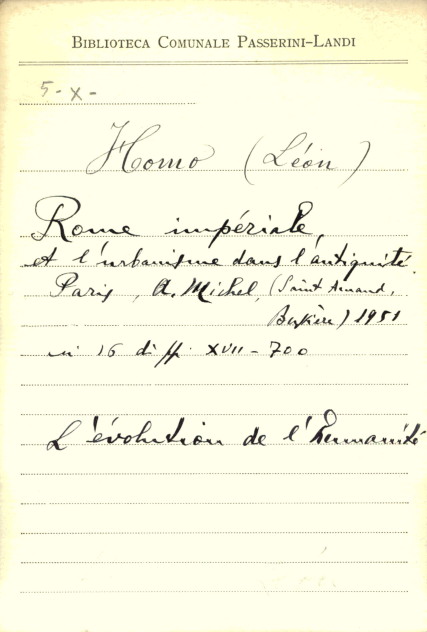 BIBLIOTECA COMUNALE PASSERINI-LANDI
5-X-
Homo (Léon)
Rome impériale,
et l'urbanisme dans l'antiquité.
Paris, A. Michel, (Saint Amand,
1951
in 16 di pp. XVII-700
L'évolution de l'Humanité